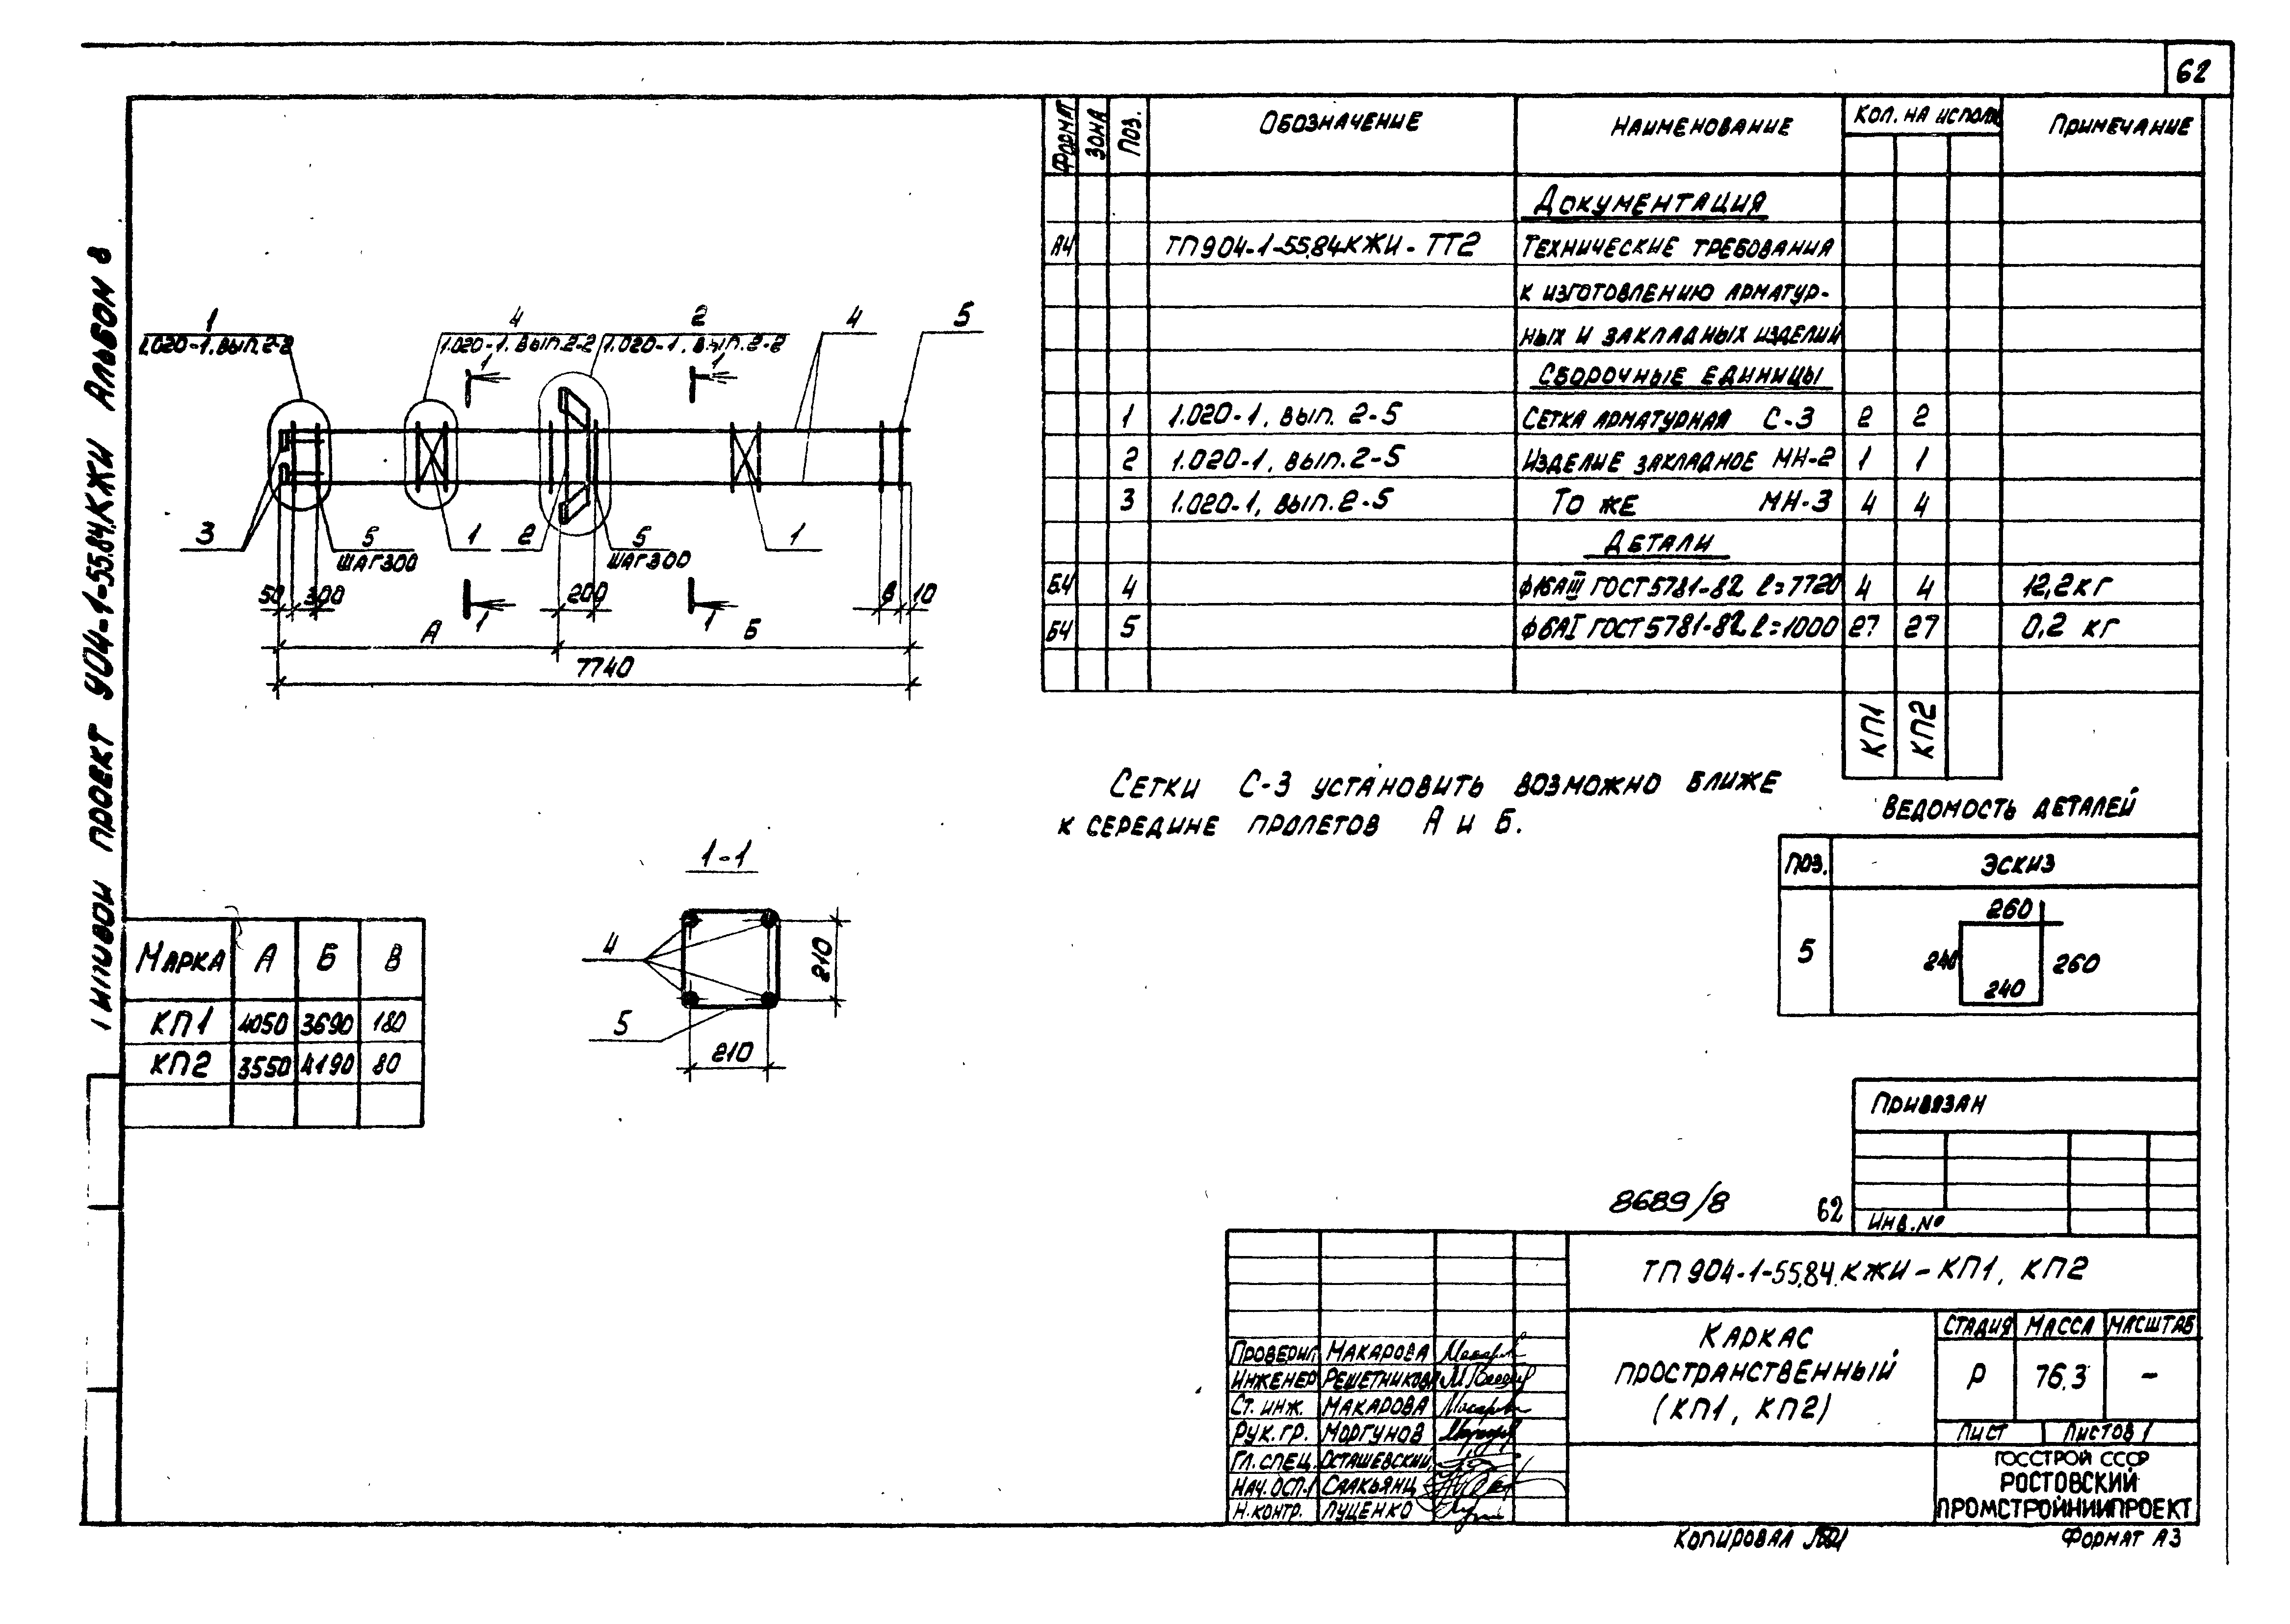 62
ТИПОВОЙ ПРОЕКТ 904-1-55.84.КЖИ АЛЬБОМ 8
1
1.020-1. ВЫП. 2-2
4
1.020-1. ВЫП. 2-2
2
1.020-1. ВЫП. 2-2
4
5
1
1
3
5
ШАГ 300
1
2
5
ШАГ 300
1
50
300
200
В
10
1
1
А
Б
7740
ФОРМАТ
ЗОНА
ПОЗ.
ОБОЗНАЧЕНИЕ
НАИМЕНОВАНИЕ
КОЛ. НА ИСПОЛН
ПРИМЕЧАНИЕ
ДОКУМЕНТАЦИЯ
А4 ТП904-1-55.84КЖИ-ТТ2 ТЕХНИЧЕСКИЕ ТРЕБОВАНИЯ
К ИЗГОТОВЛЕНИЮ АРМАТУР-
НЫХ И ЗАКЛАДНЫХ ИЗДЕЛИЙ
СБОРОЧНЫЕ ЕДИНИЦЫ
1 1.020-1, ВЫП. 2-5 СЕТКА АРМАТУРНАЯ С-3 2 2
2 1.020-1, ВЫП. 2-5 ИЗДЕЛИЕ ЗАКЛАДНОЕ МН-2 1 1
3 1.020-1, ВЫП. 2-5 ТО ЖЕ МН-3 4 4
ДЕТАЛИ
БЧ 4 ф16АIII ГОСТ 5781-82 ℓ=7720 4 4 12,2 кг
БЧ 5 ф6АI ГОСТ 5781-82 ℓ=1000 27 27 0,2 кг
КП1
КП2
СЕТКИ С-3 УСТАНОВИТЬ ВОЗМОЖНО БЛИЖЕ
К СЕРЕДИНЕ ПРОЛЕТОВ А И Б.
ВЕДОМОСТЬ ДЕТАЛЕЙ
ПОЗ. ЭСКИЗ
5
260
240
260
240
1-1
4
5
210
210
МАРКА А Б В
КП1 4050 3690 180
КП2 3550 4190 80
ПРИВЯЗАН
ИНВ.№
8689/8
62
ТП 904-1-55.84.КЖИ-КП1, КП2
КАРКАС
ПРОСТРАНСТВЕННЫЙ
(КП1, КП2)
СТАДИЯ МАССА МАСШТАБ
Р 76.3 –
ЛИСТ ЛИСТОВ 1
ГОССТРОЙ СССР
РОСТОВСКИЙ
ПРОМСТРОЙНИИПРОЕКТ
ПРОВЕРИЛ МАКАРОВА
ИНЖЕНЕР РЕШЕТНИКОВА
СТ. ИНЖ. МАКАРОВА
РУК. ГР. МОРГУНОВ
ГЛ. СПЕЦ. ОСТАШЕВСКИЙ
НАЧ. ОСП-1 СААКЬЯНЦ
Н. КОНТР. ЛУЦЕНКО
КОПИРОВАЛ
ФОРМАТ А3